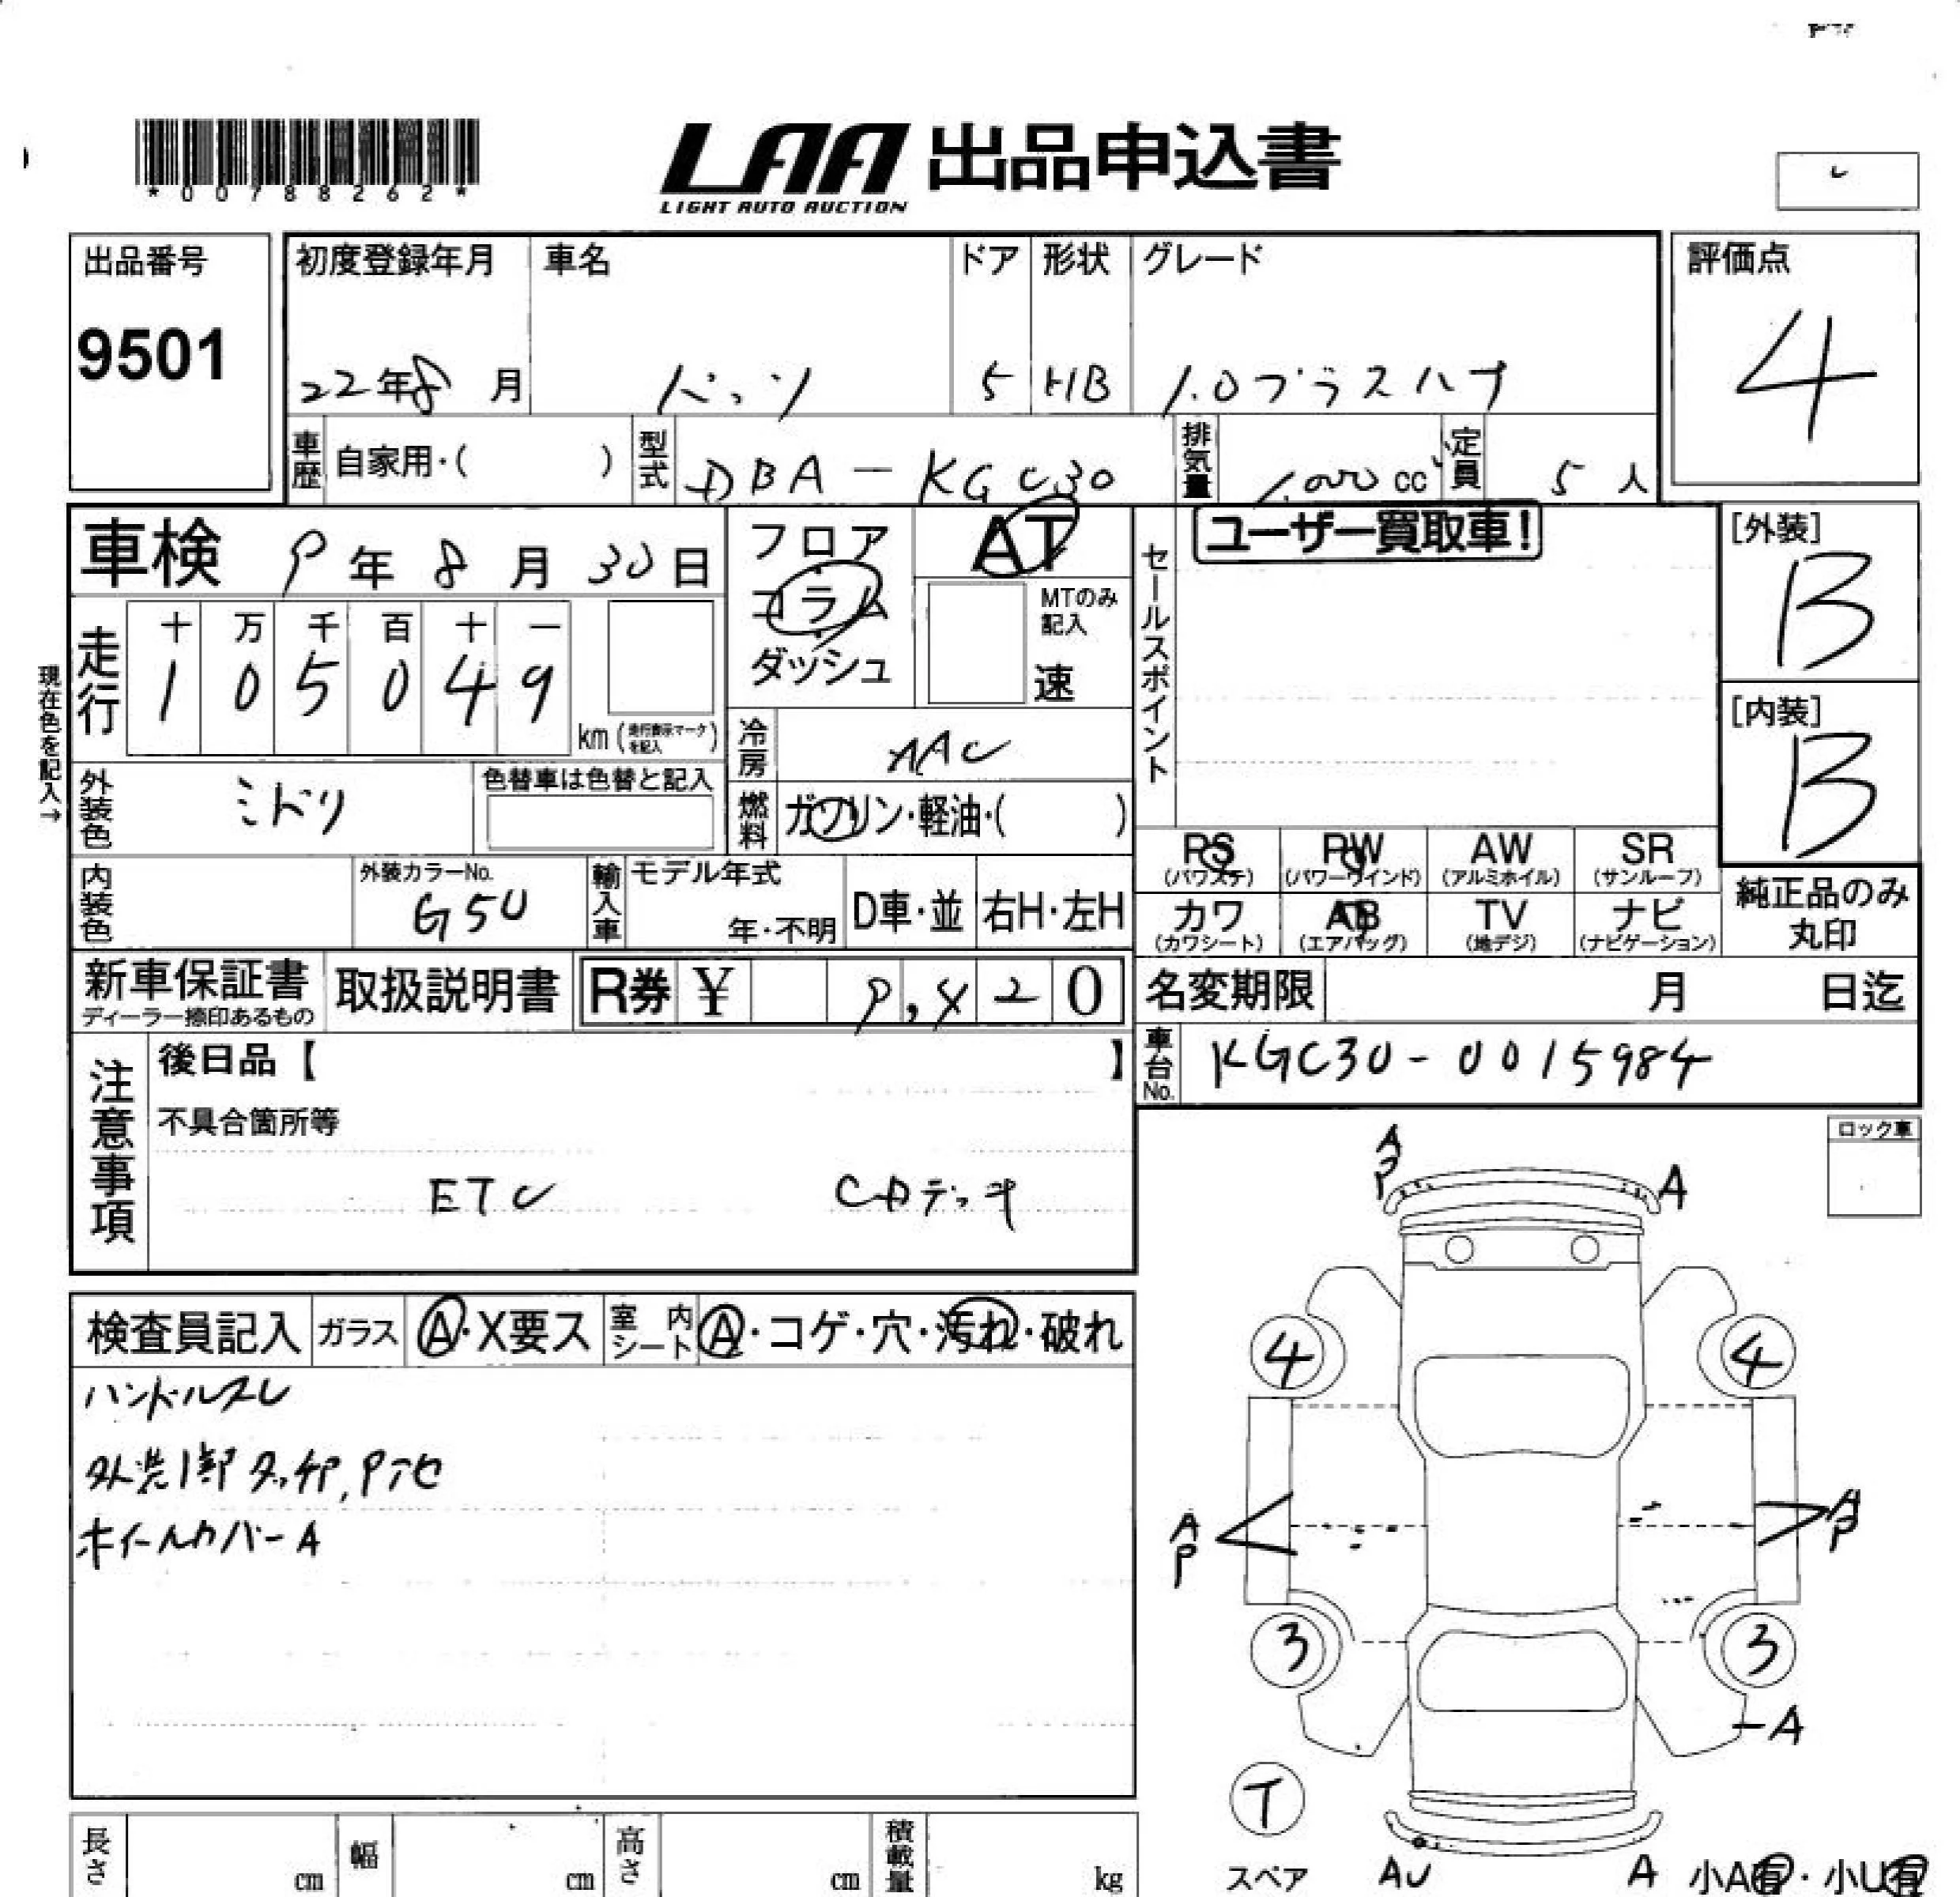 *00788262*
LAA 出品申込書
LIGHT AUTO AUCTION
出品番号
9501
初度登録年月
22年8月
車名
パッソ
ドア
5
形状
HB
グレード
1.0プラスハナ
評価点
4
車歴
自家用・( )
型式
DBA-KGC30
排気量
1,000 cc
定員
5人
車検 9年8月30日
フロア
コラム
ダッシュ
AT
MTのみ記入
速
セールスポイント
ユーザー買取車!
[外装]
B
[内装]
B
現在色を記入→
走行
十 万 千 百 十 一
1 0 5 0 4 9
km (走行表示マークを記入)
冷房
AAC
外装色
ミドリ
色替車は色替と記入
燃料
ガソリン・軽油・( )
PS
(パワステ)
PW
(パワーウインド)
AW
(アルミホイル)
SR
(サンルーフ)
カワ
(カワシート)
AB
(エアバッグ)
TV
(地デジ)
ナビ
(ナビゲーション)
純正品のみ
丸印
内装色
外装カラーNo.
G50
輸入車
モデル年式
年・不明
D車・並
右H・左H
新車保証書
ディーラー捺印あるもの
取扱説明書
R券 ¥ 9,420
名変期限 月 日迄
車台No.
KGC30-0015984
注意事項
後日品【 】
不具合箇所等
ETC CDデッキ
ロック車
検査員記入
ガラス
A・X要ス
室内シート
A・コゲ・穴・汚れ・破れ
ハンドルスレ
外装1部タッチP,P池
ホイールカバーA
A
P
A
4
4
A
P
A
P
3
3
A
T
スペア
AU
A
小A有・小U有
長さ
cm
幅
cm
高さ
cm
積載量
kg